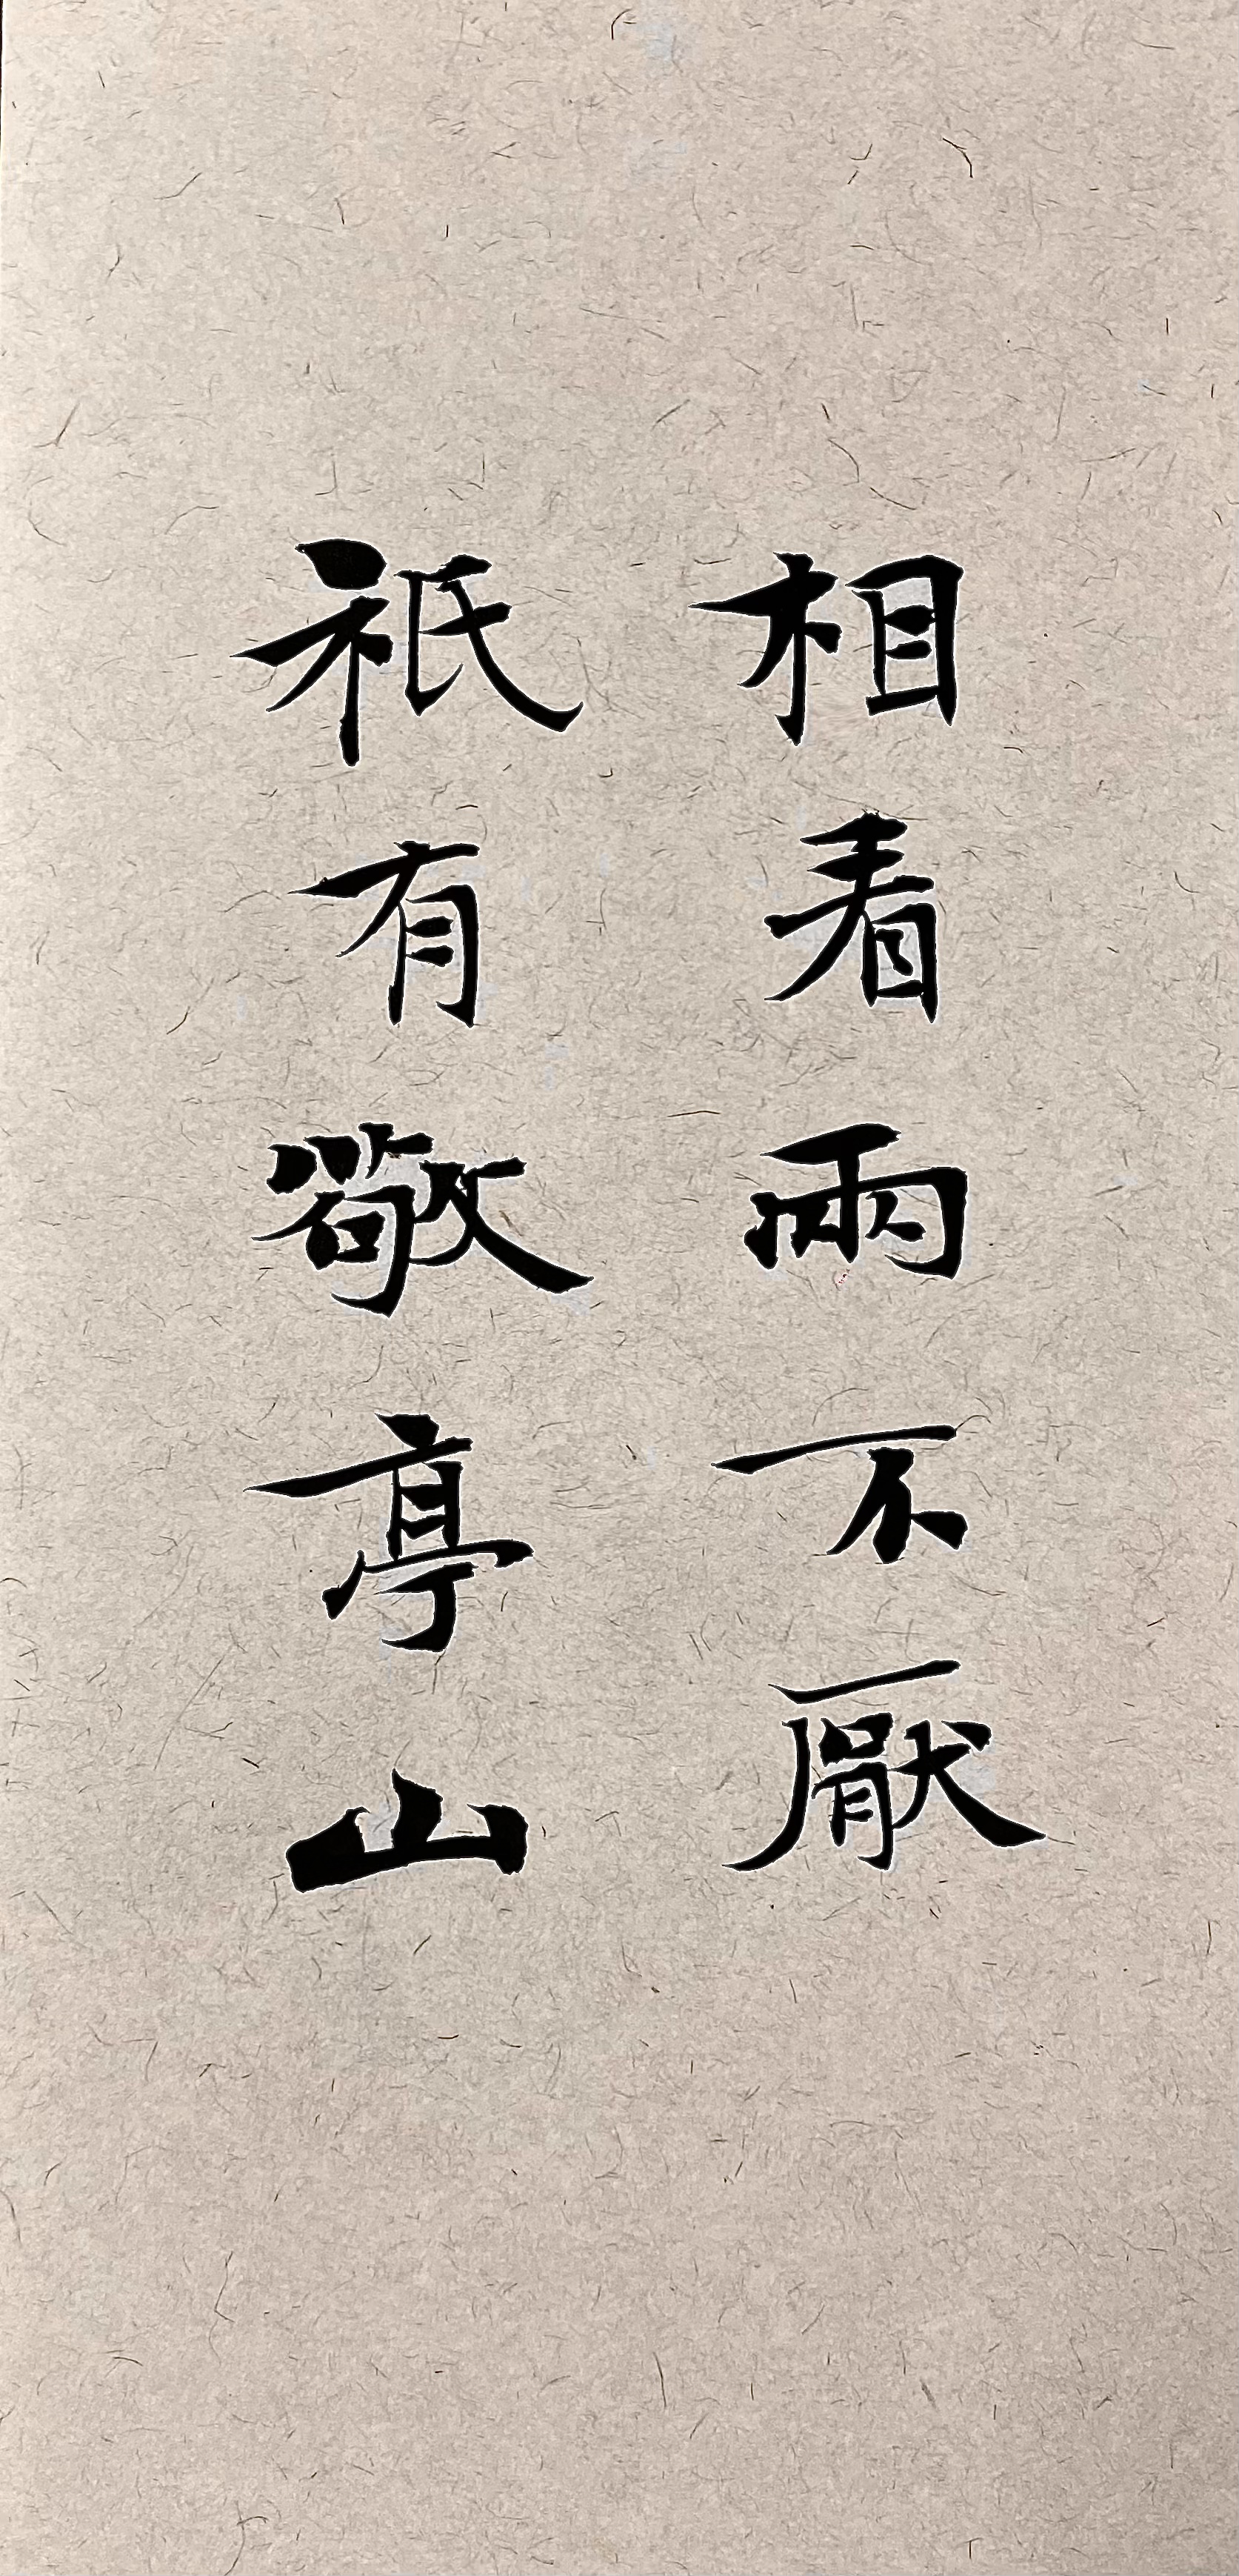 相看兩不厭
祇有敬亭山